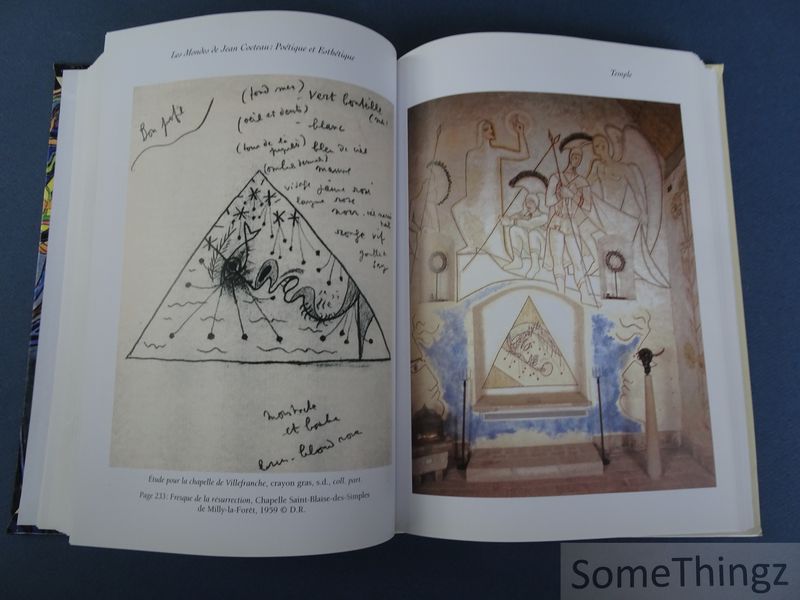 Les Mondes de Jean Cocteau : Poétique et Esthétique
Bon profil
(fond mer) vert bouteille
(œil et dents)
- blanc
bleu de ciel
mauve
visage jaune rosi
langue rose
rouge vif
moustache
et bouche
rose
Étude pour la chapelle de Villefranche, crayon gras, s.d., coll. part.
Page 233 : Fresque de la résurrection, Chapelle Saint-Blaise-des-Simples
de Milly-la-Forêt, 1959 © D.R.
Temple
SomeThingz